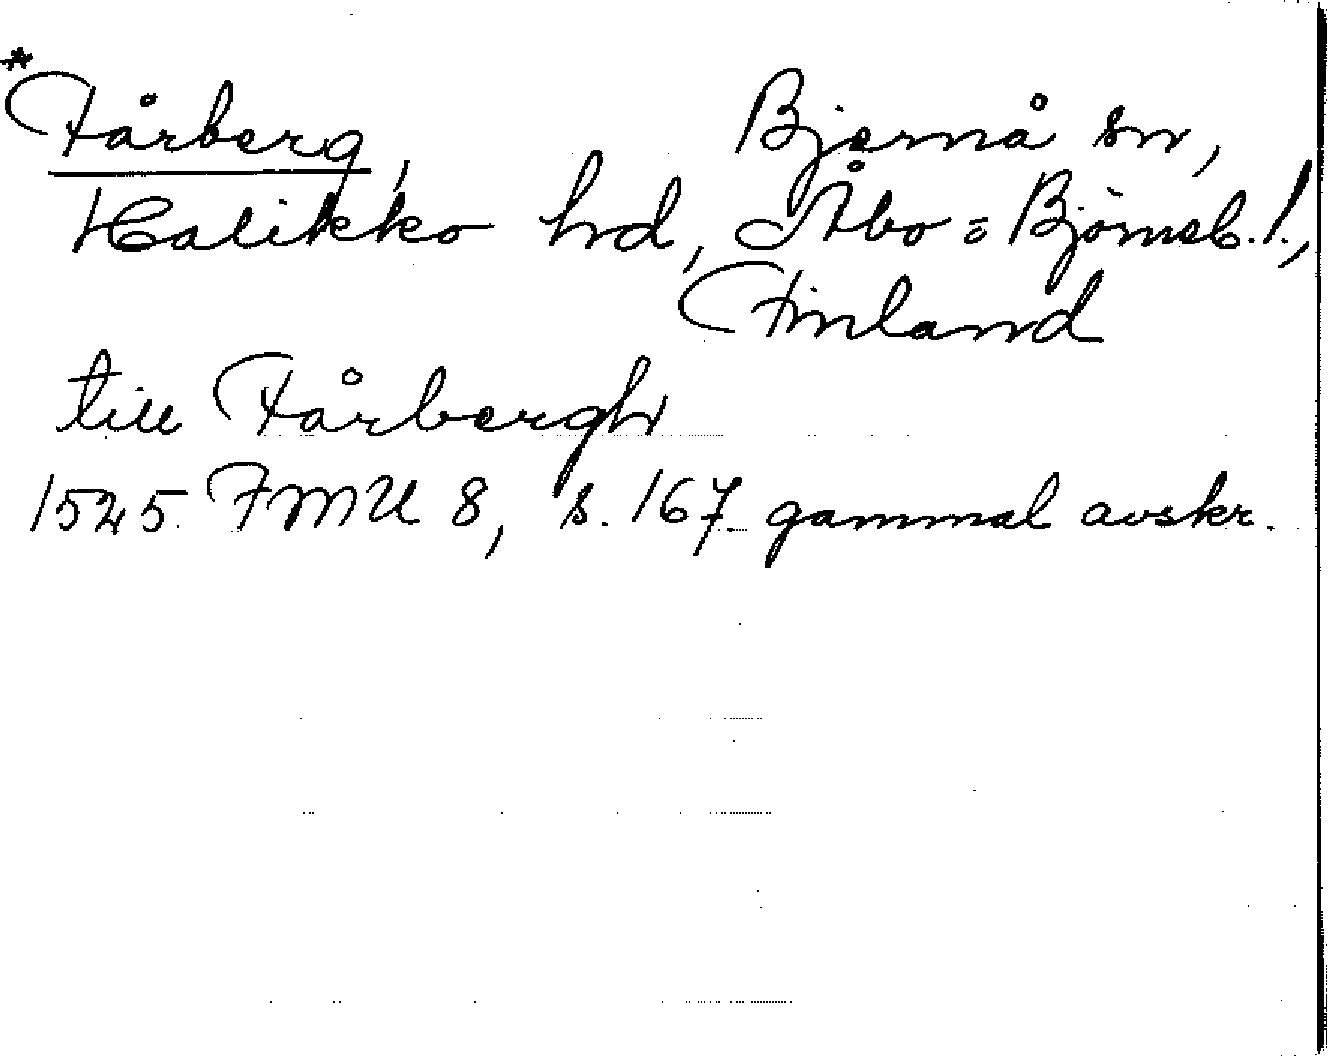 *Fårberg, Bjernå sn,
Halikko hd, Åbo = Björneb. l.,
Finland
till Fårbergh
1525 FMU 8, s. 167 gammal avskr.